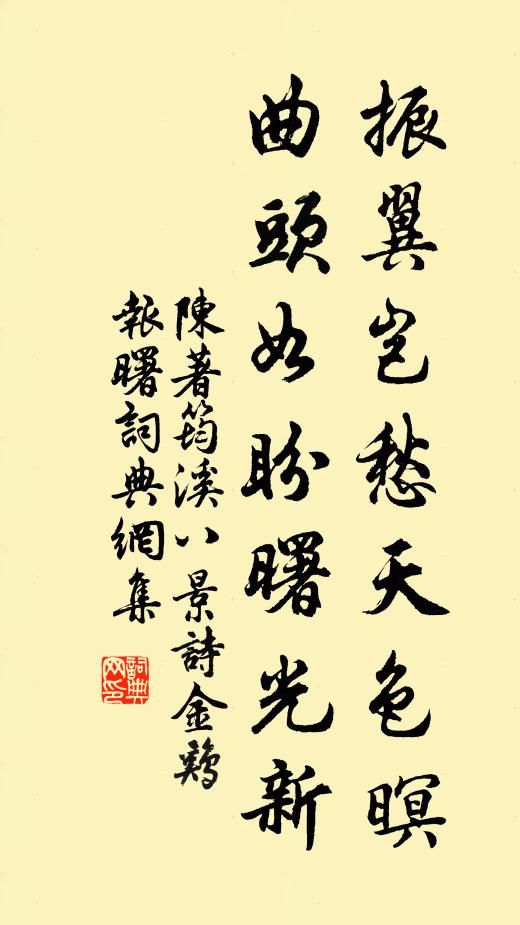 振翼岂愁天色暝
曲頭如盼曙光新
陳著筠溪八景詩金鷄
報曙詞典網集
詞典網印